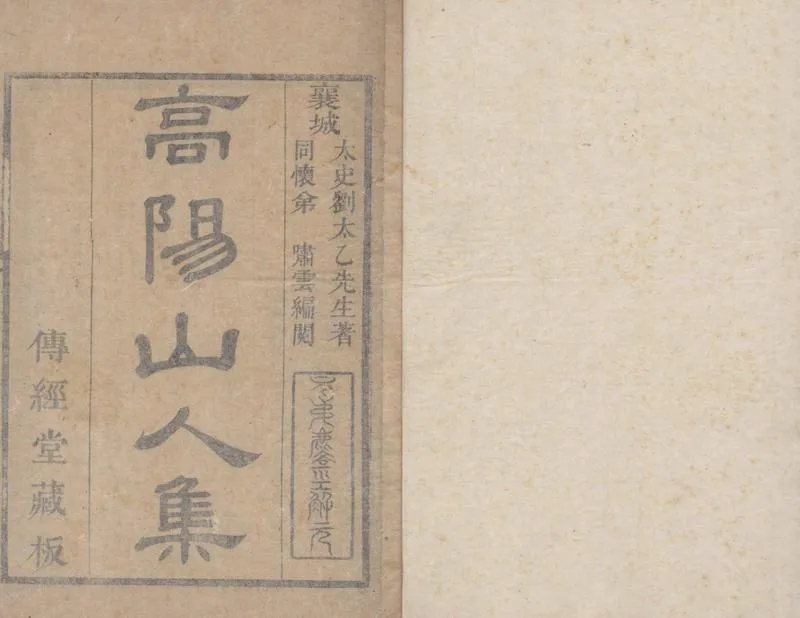 襄城
太史劉太乙先生著
同懷弟 嘯雲編閱
高陽山人集
傳經堂藏板